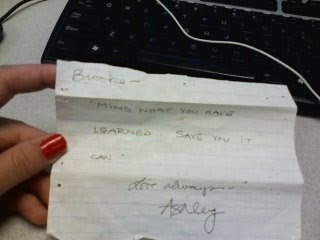 Brooke—
"MIND WHAT YOU HAVE
LEARNED. SAVE YOU IT
CAN"
Love always—
Ashley